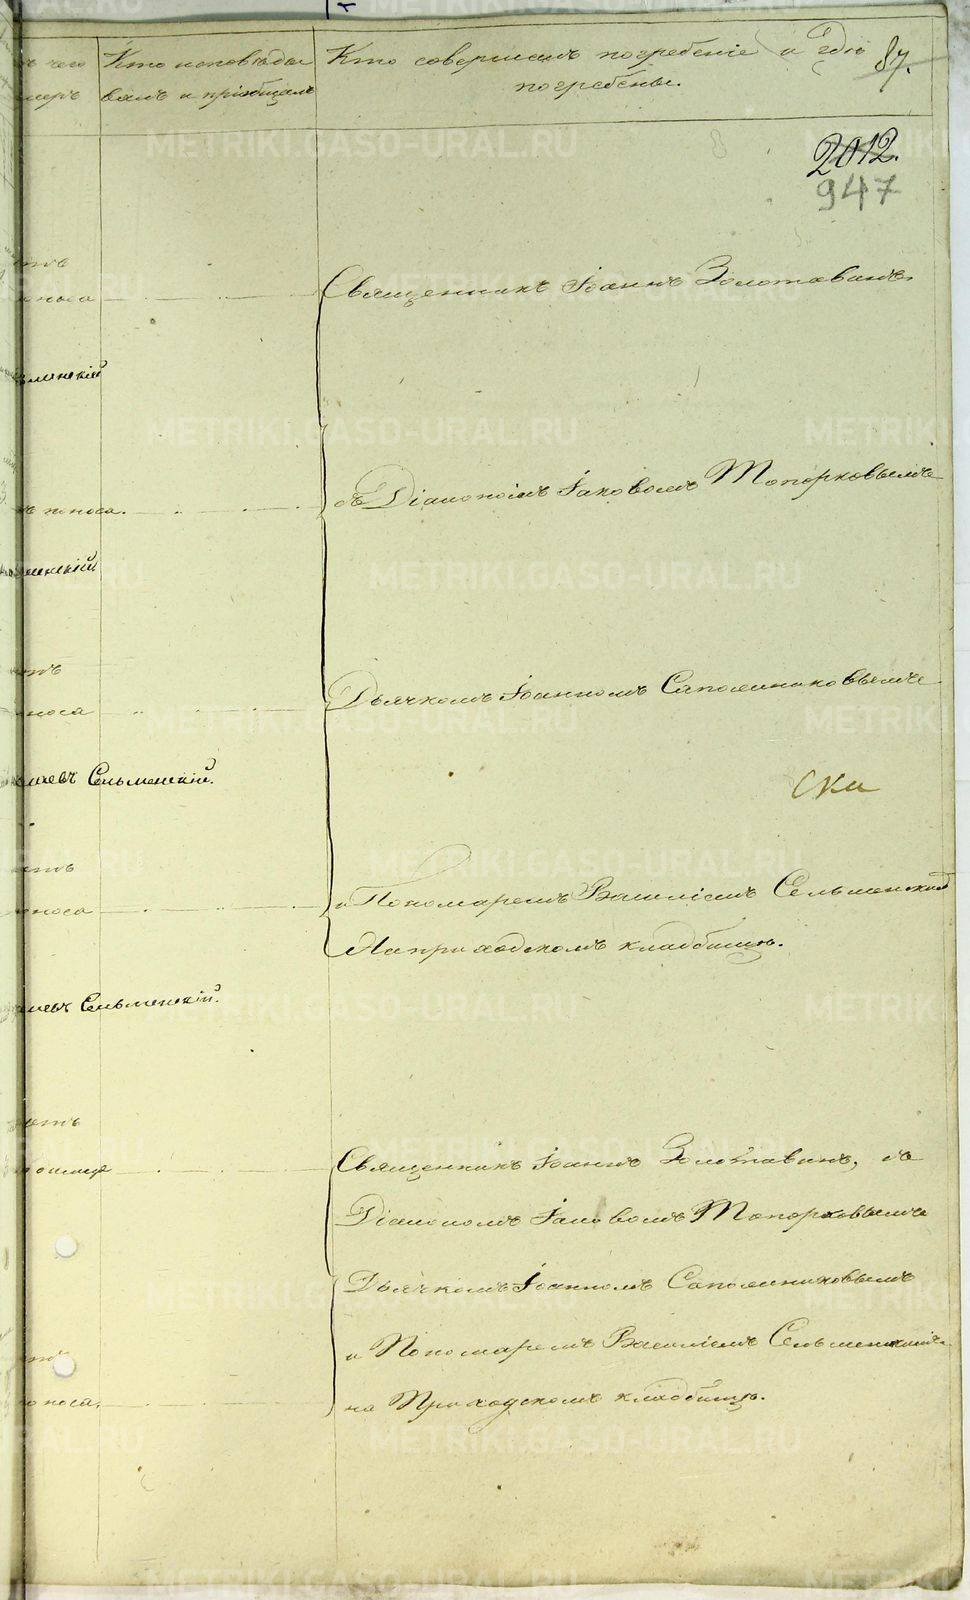 Кто исповѣды
валъ и пріобщалъ
Кто совершалъ погребеніе и гдѣ
погребены.
87.
2012.
947
Священникъ Іоаннъ Золотавинъ,
поноса
съ Діакономъ Іаковомъ Топорковымъ
поноса.
Дьячкомъ Іоанномъ Сапожниковымъ
поноса
Сельменскій.
и Пономаремъ Василіемъ Сельменскимъ
На приходскомъ кладбищѣ.
Сельменскій.
Священникъ Іоаннъ Золотавинъ, съ
Діакономъ Іаковомъ Топорковымъ
Дьячкомъ Іоанномъ Сапожниковымъ
и Пономаремъ Василіемъ Сельменскимъ
на Приходскомъ кладбищѣ.
поноса.
METRIKI.GASO-URAL.RU